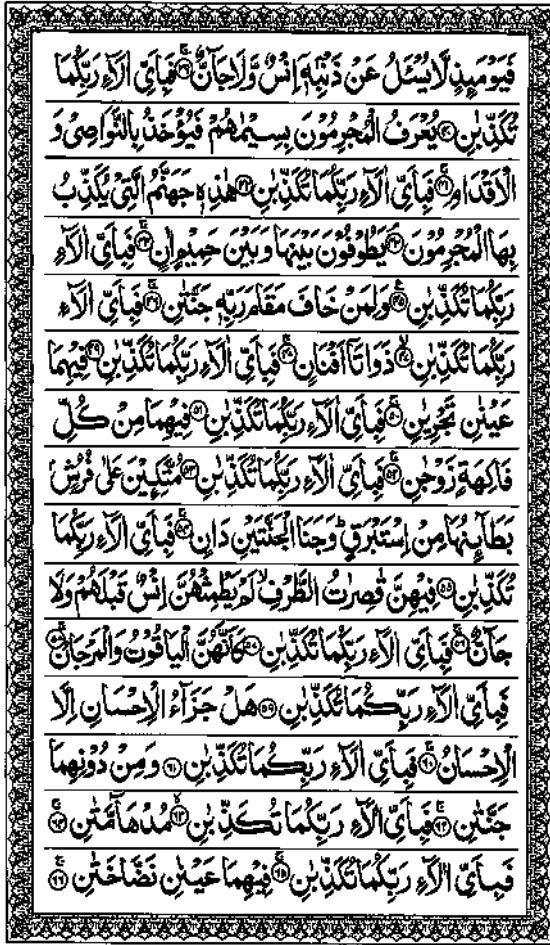 فَيَوْمَىِٕذٍ لَّا یُسْـَٔلُ عَنْ ذَنْۢبِهٖۤ اِنْسٌ وَّ لَا جَآنٌّ ۟ۚ۳۹ فَبِاَیِّ اٰلَآءِ رَبِّكُمَا
تُكَذِّبٰنِ ۴۰ یُعْرَفُ الْمُجْرِمُوْنَ بِسِیْمٰهُمْ فَیُؤْخَذُ بِالنَّوَاصِیْ وَ
الْاَقْدَامِ ۟ۚ۴۱ فَبِاَیِّ اٰلَآءِ رَبِّكُمَا تُكَذِّبٰنِ ۴۲ هٰذِهٖ جَهَنَّمُ الَّتِیْ یُكَذِّبُ
بِهَا الْمُجْرِمُوْنَ ۟ۘ۴۳ یَطُوْفُوْنَ بَیْنَهَا وَ بَیْنَ حَمِیْمٍ اٰنٍ ۟ۚ۴۴ فَبِاَیِّ اٰلَآءِ
رَبِّكُمَا تُكَذِّبٰنِ ۟۠۴۵ وَ لِمَنْ خَافَ مَقَامَ رَبِّهٖ جَنَّتٰنِ ۟ۚ۴۶ فَبِاَیِّ اٰلَآءِ
رَبِّكُمَا تُكَذِّبٰنِ ۟ۙ۴۷ ذَوَاتَاۤ اَفْنَانٍ ۟ۚ۴۸ فَبِاَیِّ اٰلَآءِ رَبِّكُمَا تُكَذِّبٰنِ ۴۹ فِیْهِمَا
عَیْنٰنِ تَجْرِیٰنِ ۟ۚ۵۰ فَبِاَیِّ اٰلَآءِ رَبِّكُمَا تُكَذِّبٰنِ ۵۱ فِیْهِمَا مِنْ كُلِّ
فَاكِهَةٍ زَوْجٰنِ ۟ۚ۵۲ فَبِاَیِّ اٰلَآءِ رَبِّكُمَا تُكَذِّبٰنِ ۵۳ مُتَّكِـِٕیْنَ عَلٰی فُرُشٍۭ
بَطَآىِٕنُهَا مِنْ اِسْتَبْرَقٍ ؕ وَ جَنَا الْجَنَّتَیْنِ دَانٍ ۟ۚ۵۴ فَبِاَیِّ اٰلَآءِ رَبِّكُمَا
تُكَذِّبٰنِ ۵۵ فِیْهِنَّ قٰصِرٰتُ الطَّرْفِ ۙ لَمْ یَطْمِثْهُنَّ اِنْسٌ قَبْلَهُمْ وَ لَا
جَآنٌّ ۟ۚ۵۶ فَبِاَیِّ اٰلَآءِ رَبِّكُمَا تُكَذِّبٰنِ ۟ۚ۵۷ كَاَنَّهُنَّ الْیَاقُوْتُ وَ الْمَرْجَانُ ۟ۚ۵۸
فَبِاَیِّ اٰلَآءِ رَبِّكُمَا تُكَذِّبٰنِ ۵۹ هَلْ جَزَآءُ الْاِحْسَانِ اِلَّا
الْاِحْسَانُ ۟ۚ۶۰ فَبِاَیِّ اٰلَآءِ رَبِّكُمَا تُكَذِّبٰنِ ۶۱ وَ مِنْ دُوْنِهِمَا
جَنَّتٰنِ ۟ۚ۶۲ فَبِاَیِّ اٰلَآءِ رَبِّكُمَا تُكَذِّبٰنِ ۟ۙ۶۳ مُدْهَآمَّتٰنِ ۟ۚ۶۴
فَبِاَیِّ اٰلَآءِ رَبِّكُمَا تُكَذِّبٰنِ ۟ۚ۶۵ فِیْهِمَا عَیْنٰنِ نَضَّاخَتٰنِ ۟ۚ۶۶